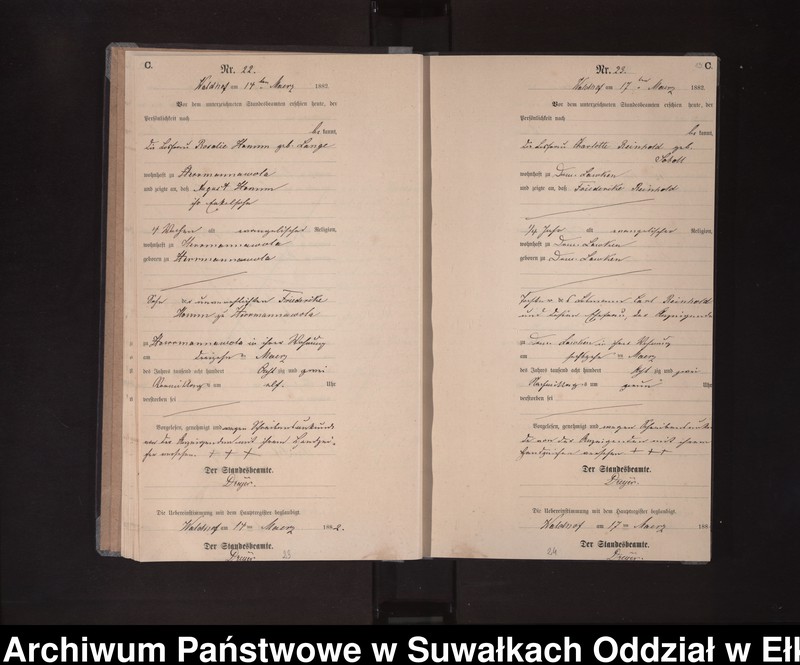 C.
Nr. 22.
Waldhof am 14ten Maerz 1882.
Vor dem unterzeichneten Standesbeamten erschien heute, der
Persönlichkeit nach
be kannt,
die Losfrau Rosalie Hamm geb. Lange
wohnhaft zu Herrmannawola
und zeigte an, daß August Hamm
ihr Enkelsohn
4 Wochen alt evangelischer Religion,
wohnhaft zu Herrmannawola
geboren zu Herrmannawola
Sohn der unverehelichten Friederike
Hamm zu Herrmannawola
zu Herrmannawola in ihrer Wohnung
am dreizehnten Maerz
des Jahres tausend acht hundert acht zig und zwei
Vormittags um elf Uhr
verstorben sei
Vorgelesen, genehmigt und wegen Schreibensunkunde
von der Anzeigenden mit ihrem Handzei-
chen versehen. + + +
Der Standesbeamte.
Dreyer.
Die Uebereinstimmung mit dem Hauptregister beglaubigt.
Waldhof am 14ten Maerz 1882.
Der Standesbeamte.
Dreyer.
23
C.
Nr. 23.
Waldhof am 17ten Maerz 1882.
Vor dem unterzeichneten Standesbeamten erschien heute, der
Persönlichkeit nach
be kannt,
die Losfrau Charlotte Reinhold geb.
Sobott
wohnhaft zu Dom. Lawken
und zeigte an, daß Friederike Reinhold
1/4 Jahr alt evangelischer Religion,
wohnhaft zu Dom. Lawken
geboren zu Dom. Lawken
Tochter des Losmann Carl Reinhold
und dessen Ehefrau, der Anzeigenden
zu Dom. Lawken in ihrer Wohnung
am Maerz
des Jahres tausend acht hundert acht zig und zwei
Nachmittags um neun Uhr
verstorben sei
Vorgelesen, genehmigt und wegen Schreibensunkun
de von der Anzeigenden mit ihrem
Handzeichen versehen + + +
Der Standesbeamte.
Dreyer.
Die Uebereinstimmung mit dem Hauptregister beglaubigt.
Waldhof am 17ten Maerz 188
Der Standesbeamte.
Dreyer.
24
Archiwum Państwowe w Suwałkach Oddział w Ełk